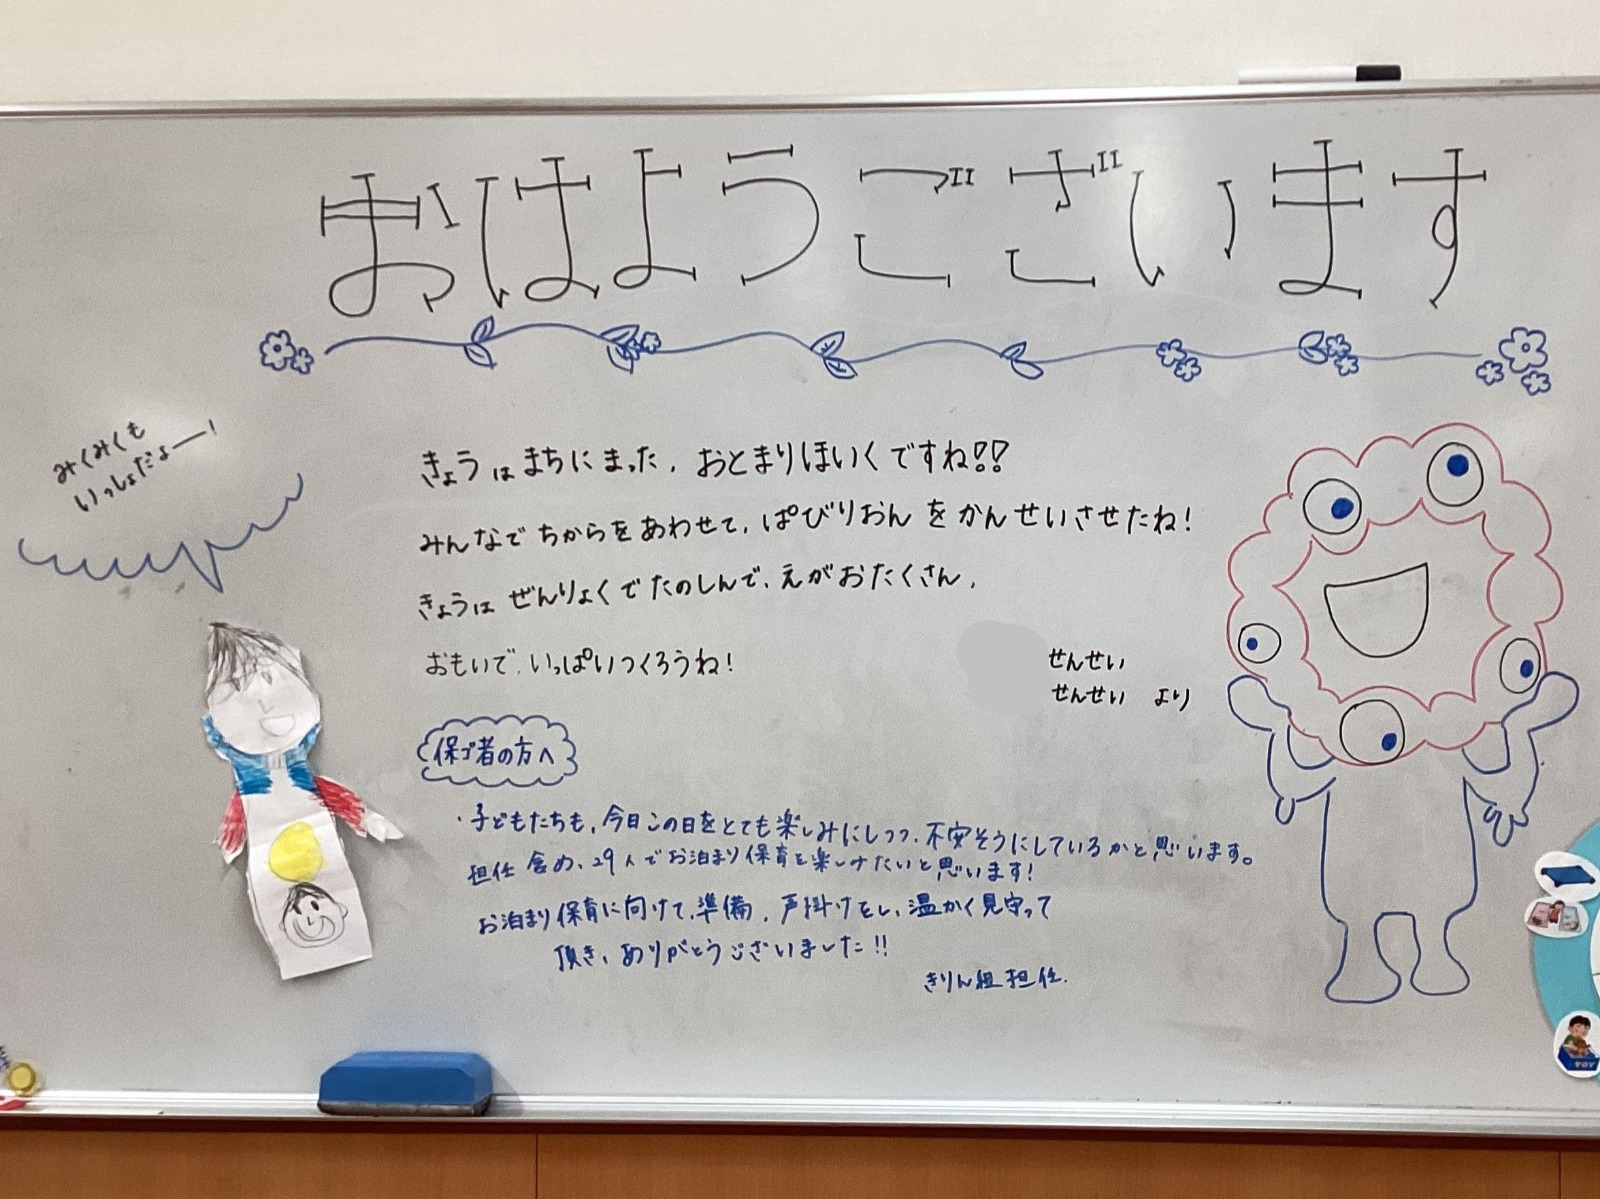 おはようございます
みくみくも
いっしょだよー!
きょうは まちにまった、おとまりほいくですね!!
みんなで ちからを あわせて、ぱびりおん を かんせいさせたね!
きょうは ぜんりょくで たのしんで、えがおたくさん、
おもいで、いっぱいつくろうね!
せんせい
せんせい より
保ゴ者の方へ
・子どもたちも、今日この日をとても楽しみにしつつ、不安そうにしているかと思います。
担任 含め、29人でお泊まり保育を楽しみたいと思います!
お泊まり保育に向けて、準備、声掛けをし、温かく見守って
頂き、ありがとうございました!!
きりん組 担任.